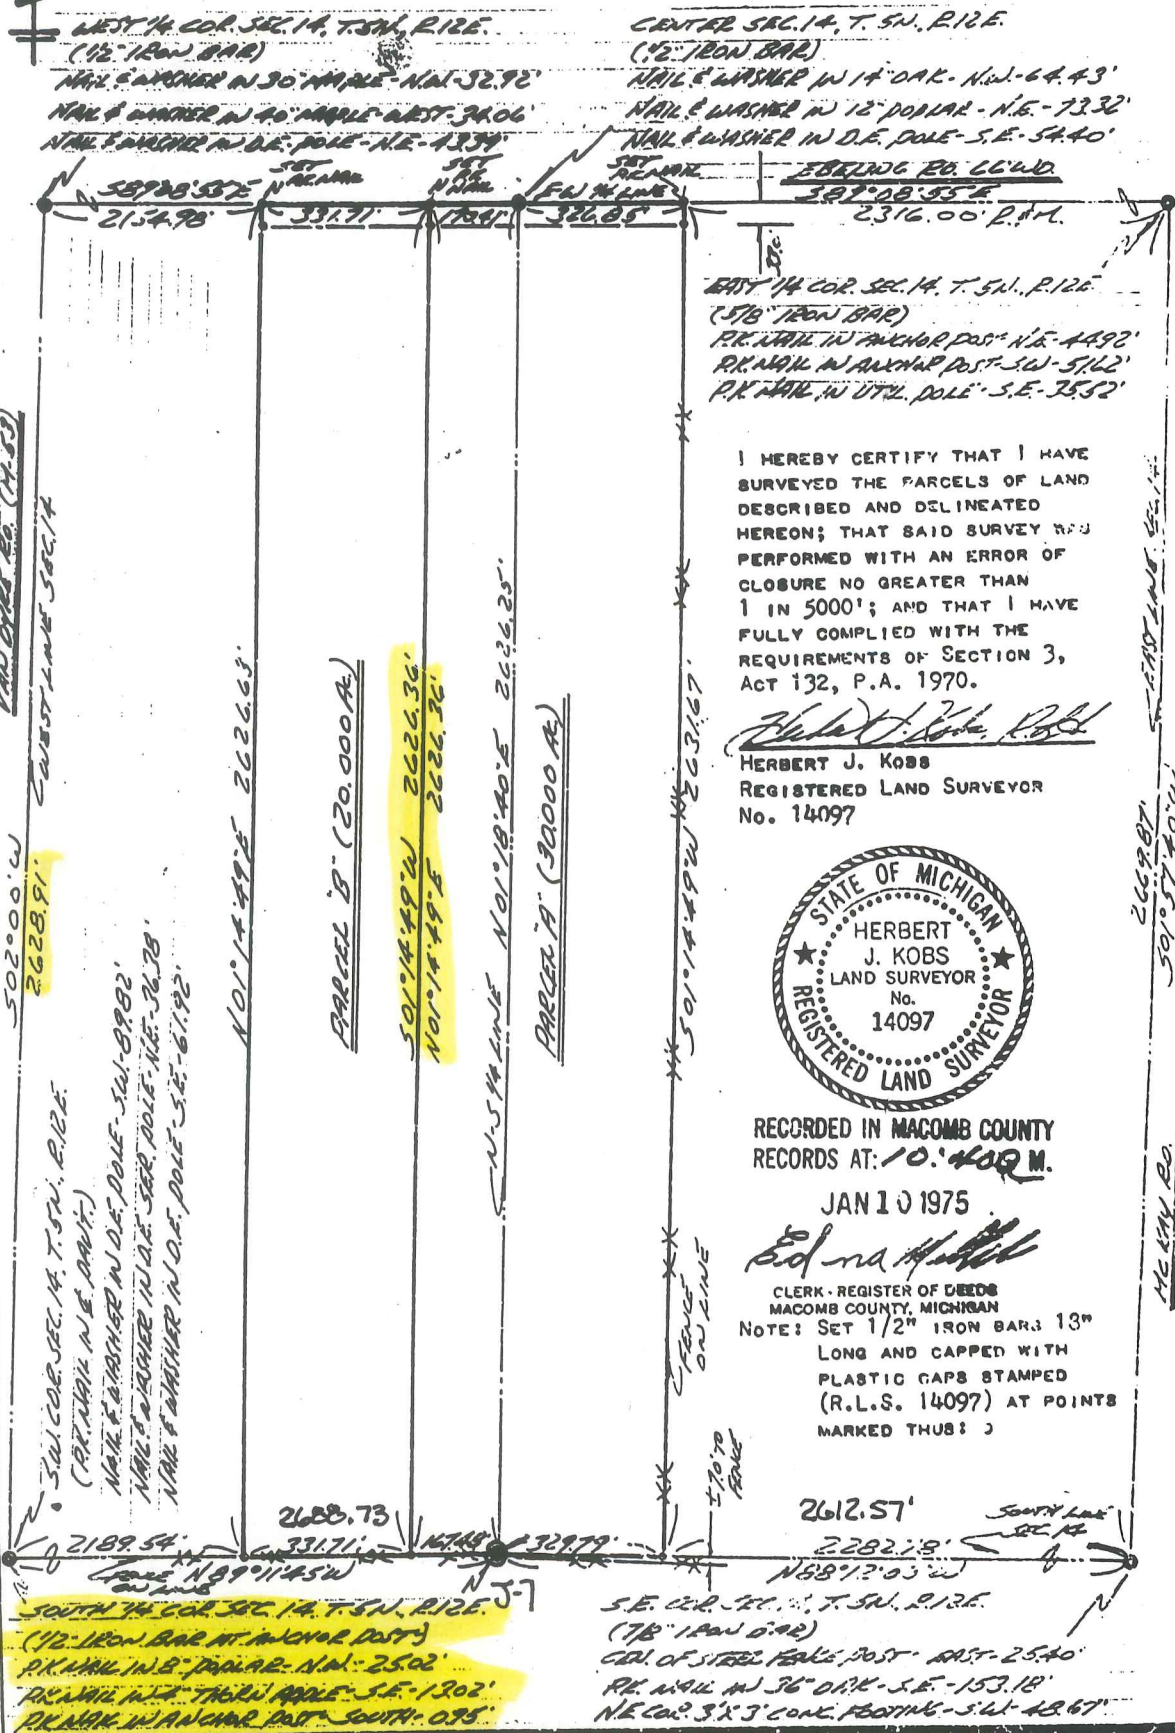 WEST 1/4 COR. SEC. 14, T. 5N., R.12E.
(1/2" IRON BAR)
NAIL & WASHER IN 30" MAPLE - N.W. - 32.92'
NAIL & WASHER IN 40" MAPLE - WEST - 34.06'
NAIL & WASHER IN D.E. POLE - N.E. - 43.39'
CENTER SEC. 14, T. 5N., R.12E.
(1/2" IRON BAR)
NAIL & WASHER IN 14" OAK - N.W. - 64.43'
NAIL & WASHER IN 12" POPLAR - N.E. - 73.32'
NAIL & WASHER IN D.E. POLE - S.E. - 54.40'
EBELING RD. 66' WD.
S89°08'55"E
2316.00' R.&M.
S89°08'55"E
2154.98'
SET
P.K. NAIL
331.71'
SET
P.K.
NAIL
170.41'
E-W 1/4 LINE
SET
P.K. NAIL
326.85'
33.0'
EAST 1/4 COR. SEC. 14, T. 5N., R.12E.
(5/8" IRON BAR)
P.K. NAIL IN ANCHOR POST - N.E. - 44.92'
P.K. NAIL IN ANCHOR POST - S.W. - 51.62'
P.K. NAIL IN UTIL. POLE - S.E. - 35.52'
VAN DYKE RD. (M-53)
WEST LINE SEC. 14
S02°00'W
2628.91'
N01°14'49"E 2626.63'
PARCEL "B" (20.000 AC.)
S01°14'49"W 2626.36'
N01°14'49"E 2626.36'
N-S 1/4 LINE N01°18'40"E 2626.25'
PARCEL "A" (30.000 AC.)
S01°14'49"W 2631.67'
FENCE
ON LINE
±7.0' TO
FENCE
I HEREBY CERTIFY THAT I HAVE
SURVEYED THE PARCELS OF LAND
DESCRIBED AND DELINEATED
HEREON; THAT SAID SURVEY WAS
PERFORMED WITH AN ERROR OF
CLOSURE NO GREATER THAN
1 IN 5000'; AND THAT I HAVE
FULLY COMPLIED WITH THE
REQUIREMENTS OF SECTION 3,
ACT 132, P.A. 1970.
Herbert J. Kobs, R.L.S.
HERBERT J. KOBS
REGISTERED LAND SURVEYOR
No. 14097
STATE OF MICHIGAN
HERBERT
J. KOBS
LAND SURVEYOR
No.
14097
REGISTERED LAND SURVEYOR
RECORDED IN MACOMB COUNTY
RECORDS AT: 10:40 A M.
JAN 10 1975
Edna
CLERK - REGISTER OF DEEDS
MACOMB COUNTY, MICHIGAN
NOTE: SET 1/2" IRON BARS 18"
LONG AND CAPPED WITH
PLASTIC CAPS STAMPED
(R.L.S. 14097) AT POINTS
MARKED THUS:
EAST LINE SEC. 14
2669.87'
MC KAY RD.
S.W. COR. SEC. 14, T. 5N., R.12E.
(P.K. NAIL IN ℄ PAV'T.)
NAIL & WASHER IN D.E. POLE - S.W. - 89.82'
NAIL & WASHER IN D.E. SER. POLE - N.E. - 36.38'
NAIL & WASHER IN D.E. POLE - S.E. - 61.92'
2688.73
2612.57'
2189.54'
331.71'
167.48'
329.79'
2282.78'
SOUTH LINE
SEC. 14
FENCE
ON LINE
N89°11'45"W
N88°12'03"W
J-7
SOUTH 1/4 COR. SEC. 14, T. 5N., R.12E.
(1/2" IRON BAR AT ANCHOR POST)
P.K. NAIL IN 8" POPLAR - N.W. - 25.02'
P.K. NAIL IN 4" THORN APPLE - S.E. - 13.02'
P.K. NAIL IN ANCHOR POST - SOUTH - 0.95'
S.E. COR. SEC. 14, T. 5N., R.12E.
(7/8" IRON BAR)
CEN. OF STEEL FENCE POST - EAST - 25.40'
P.K. NAIL IN 36" OAK - S.E. - 153.18'
N.E. COR. 3' X 3' CONC. FOOTING - S.W. - 48.67'